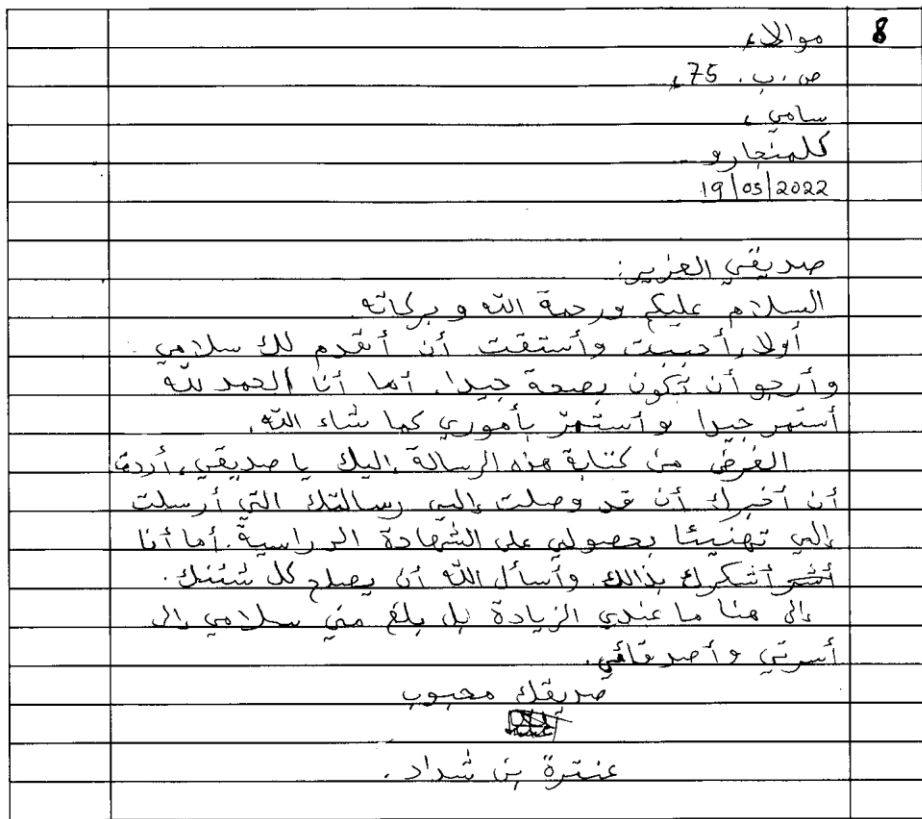 8
موالاء
ص. ب. 75،
سامي،
كلمنجارو
19/05/2022
صديقي العزيز:
السلام عليكم ورحمة الله وبركاته.
أولا، أحببت وأستقت أن أقدم لك سلامي
وأرجو أن تكون بصحة جيدا. أما أنا الحمد لله
أستمر جيدا وأستمرّ بأموري كما شاء الله.
الغرض من كتابة هذه الرسالة إليك يا صديقي، أردت
أن أخبرك أن قد وصلت إلي رسالتك التي أرسلت
إلي تهنيئا بحصولي على الشهادة الدراسية. أما أنا
أشكرك بذالك. وأسأل الله أن يصلح كل شئنك.
إلى هنا ما عندي الزيادة بل بلغ مني سلامي إلى
أسرتي وأصدقائي.
صديقك محبوب
عنترة بن شداد.